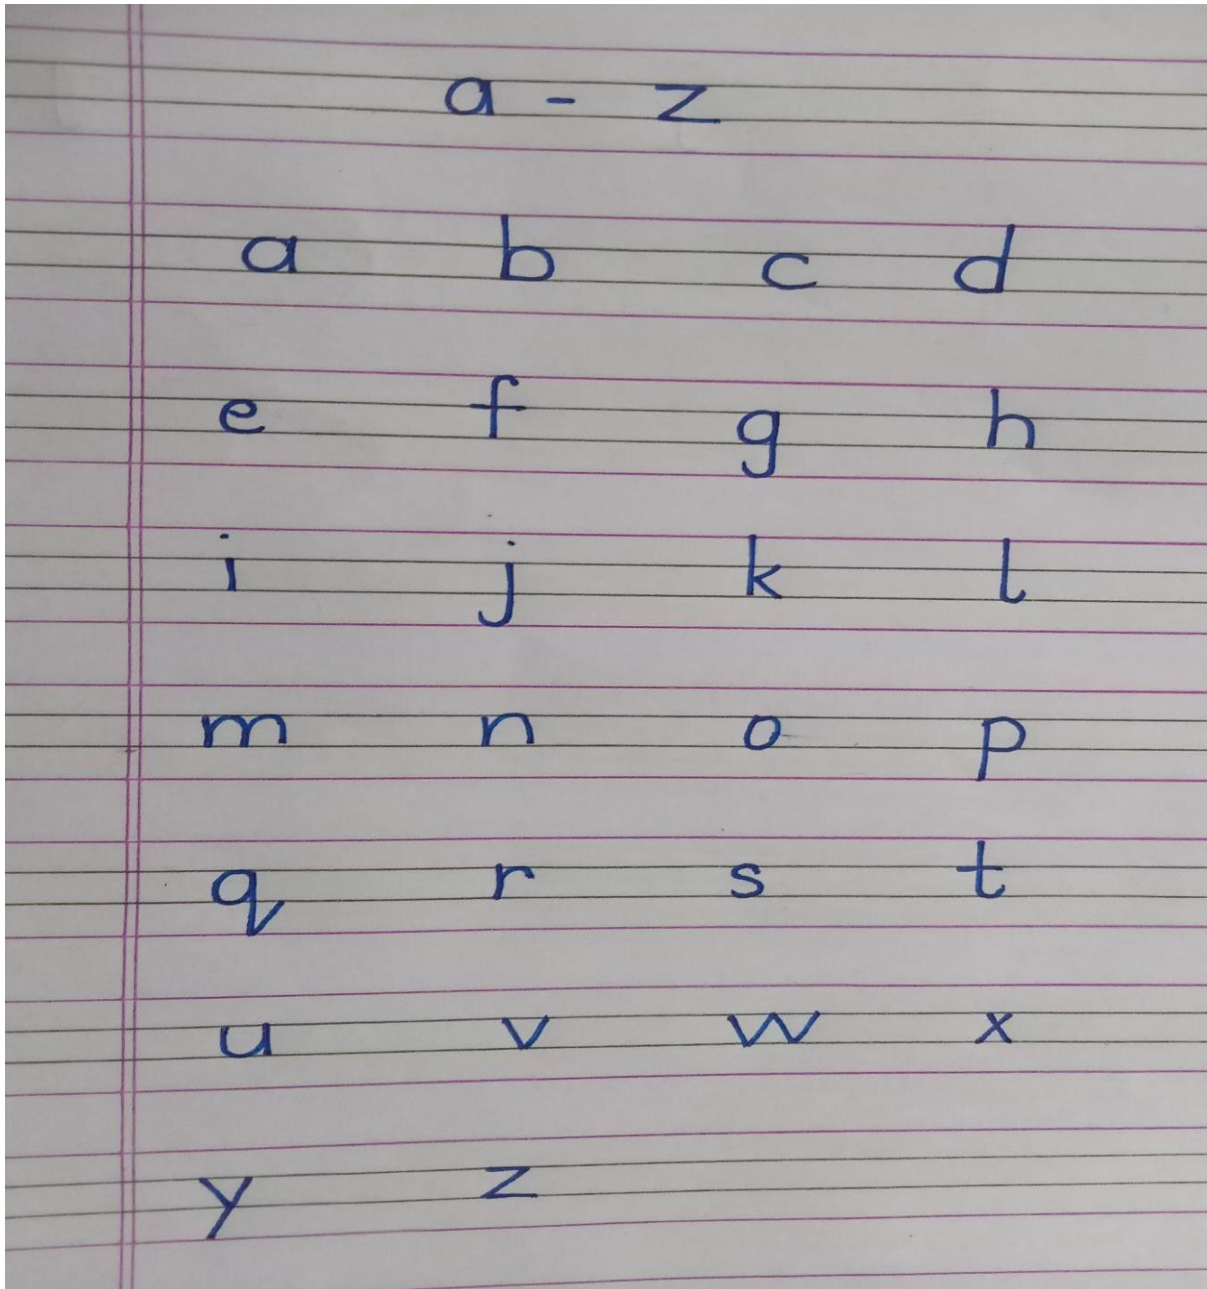 a - z
a b c d
e f g h
i j k l
m n o p
q r s t
u v w x
y z